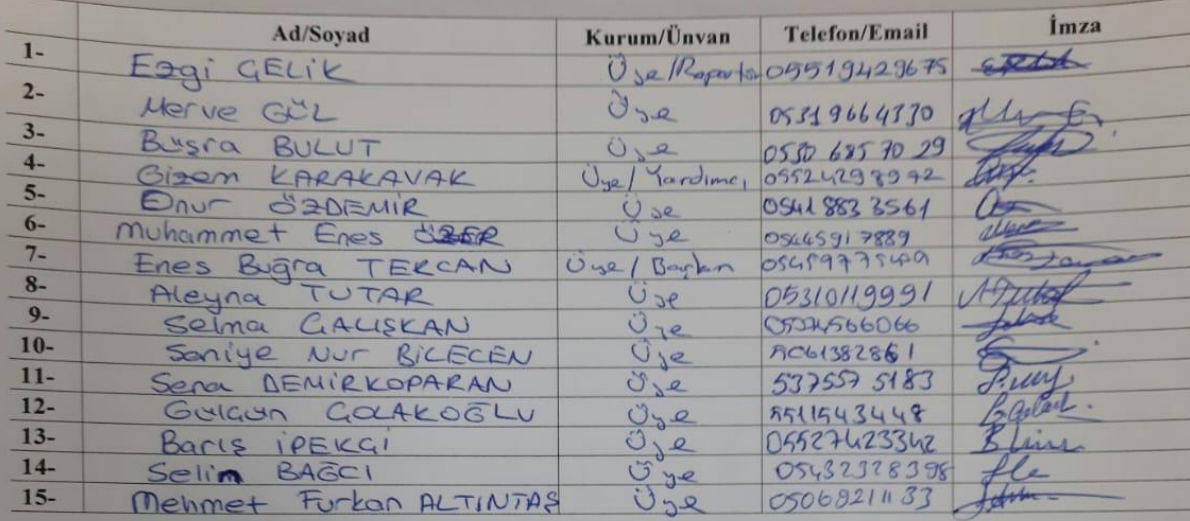 Ad/Soyad Kurum/Ünvan Telefon/Email İmza
1- Ezgi ÇELİK Üye/Raportör 05519429675
2- Merve GÜL Üye 05319664330
3- Büşra BULUT Üye 0530 685 70 29
4- Gizem KARAKAVAK Üye/Yardımcı 05524298942
5- Onur ÖZDEMİR Üye 0541 883 3561
6- Muhammet Enes ÖZER Üye 05445917889
7- Enes Buğra TERCAN Üye/Başkan
8- Aleyna TUTAR Üye 05310119991
9- Selma ÇALIŞKAN Üye
10- Saniye Nur BİLECEN Üye
11- Sena DEMİRKOPARAN Üye 537557 5183
12- Gülgün ÇOLAKOĞLU Üye 5511543448
13- Barış İPEKÇİ Üye 05527423342
14- Selim BAĞCI Üye 05432328398
15- Mehmet Furkan ALTINTAŞ Üye 05068921133